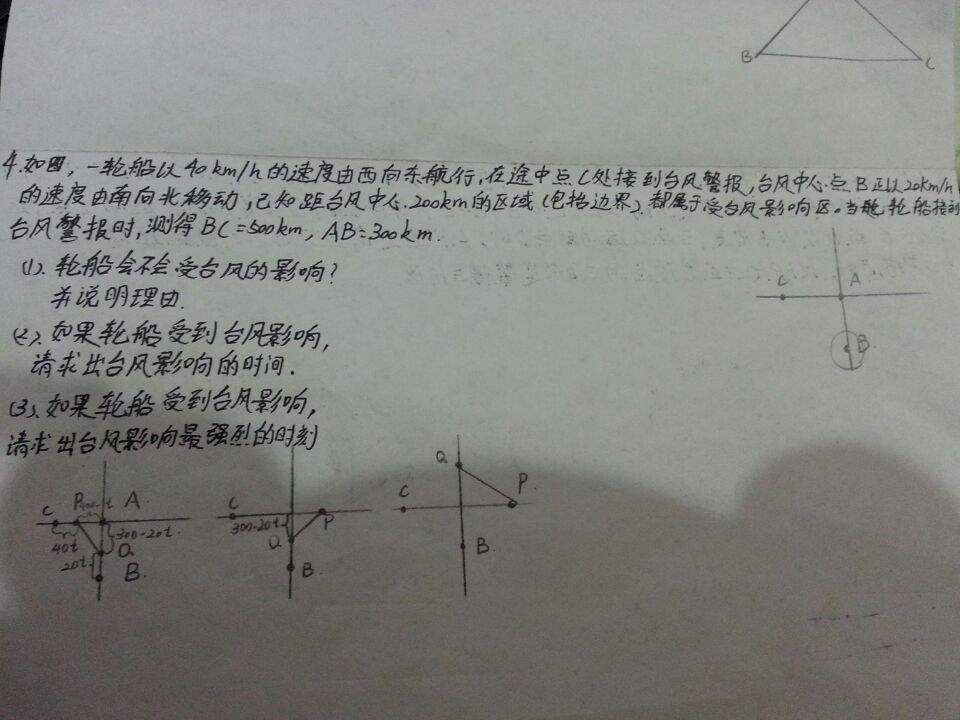 B
C
4.如图,一轮船以40km/h的速度由西向东航行,在途中点C处接到台风警报,台风中心点B正以20km/h
的速度由南向北移动,已知距台风中心200km的区域(包括边界)都属于受台风影响区。当轮船接到
台风警报时,测得BC=500km,AB=300km.
(1).轮船会不会受台风的影响?
并说明理由.
C A
(2).如果轮船受到台风影响,
B.
请求出台风影响的时间.
(3).如果轮船受到台风影响,
请求出台风影响最强烈的时刻
C P A
40t 300-20t
20t Q
B.
C
300-20t P
Q
B
Q
C P.
B